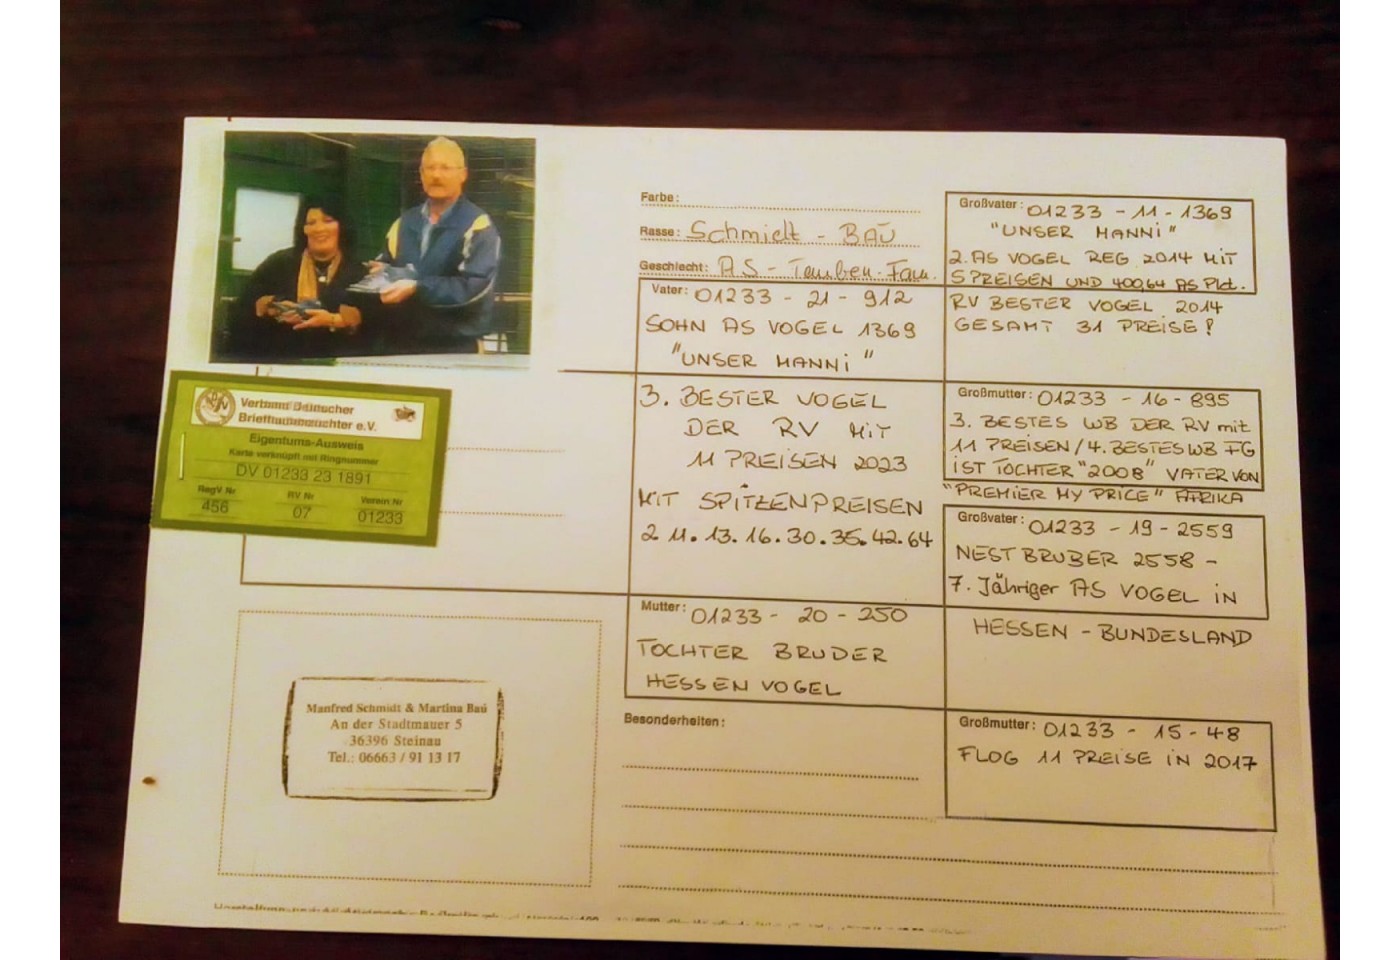 Verband Deutscher
Brieftaubenzüchter e.V.
Eigentums-Ausweis
Karte verknüpft mit Ringnummer
DV 01233 23 1891
RegV Nr
456
RV Nr
07
Verein Nr
01233
Manfred Schmidt & Martina Baú
An der Stadtmauer 5
36396 Steinau
Tel.: 06663 / 91 13 17
Farbe:
Rasse: Schmidt - BAÚ
Geschlecht: AS - Tauben-Fam.
Vater: 01233 - 21 - 912
SOHN AS VOGEL 1369
"UNSER MANNi"
3. BESTER VOGEL
DER RV MiT
11 PREISEN 2023
MIT SPITZENPREISEN
2. 11. 13. 16. 30. 35. 42. 64
Mutter: 01233 - 20 - 250
TOCHTER BRUDER
HESSEN VOGEL
Besonderheiten:
Großvater: 01233 - 11 - 1369
"UNSER MANNi"
2. AS VOGEL REG 2014 MIT
5 PREISEN UND 400,64 AS Pkt.
RV BESTER VOGEL 2014
GESAMT 31 PREISE!
Großmutter: 01233 - 16 - 895
3. BESTES WB DER RV mit
11 PREISEN / 4. BESTES WB FG
iST TOCHTER "2008" VATER VON
"PREMIER MY PRICE" AFRIKA
Großvater: 01233 - 19 - 2559
NESTBRUBER 2558 -
7. Jähriger AS VOGEL iN
HESSEN - BUNDESLAND
Großmutter: 01233 - 15 - 48
FLOG 11 PREISE iN 2017